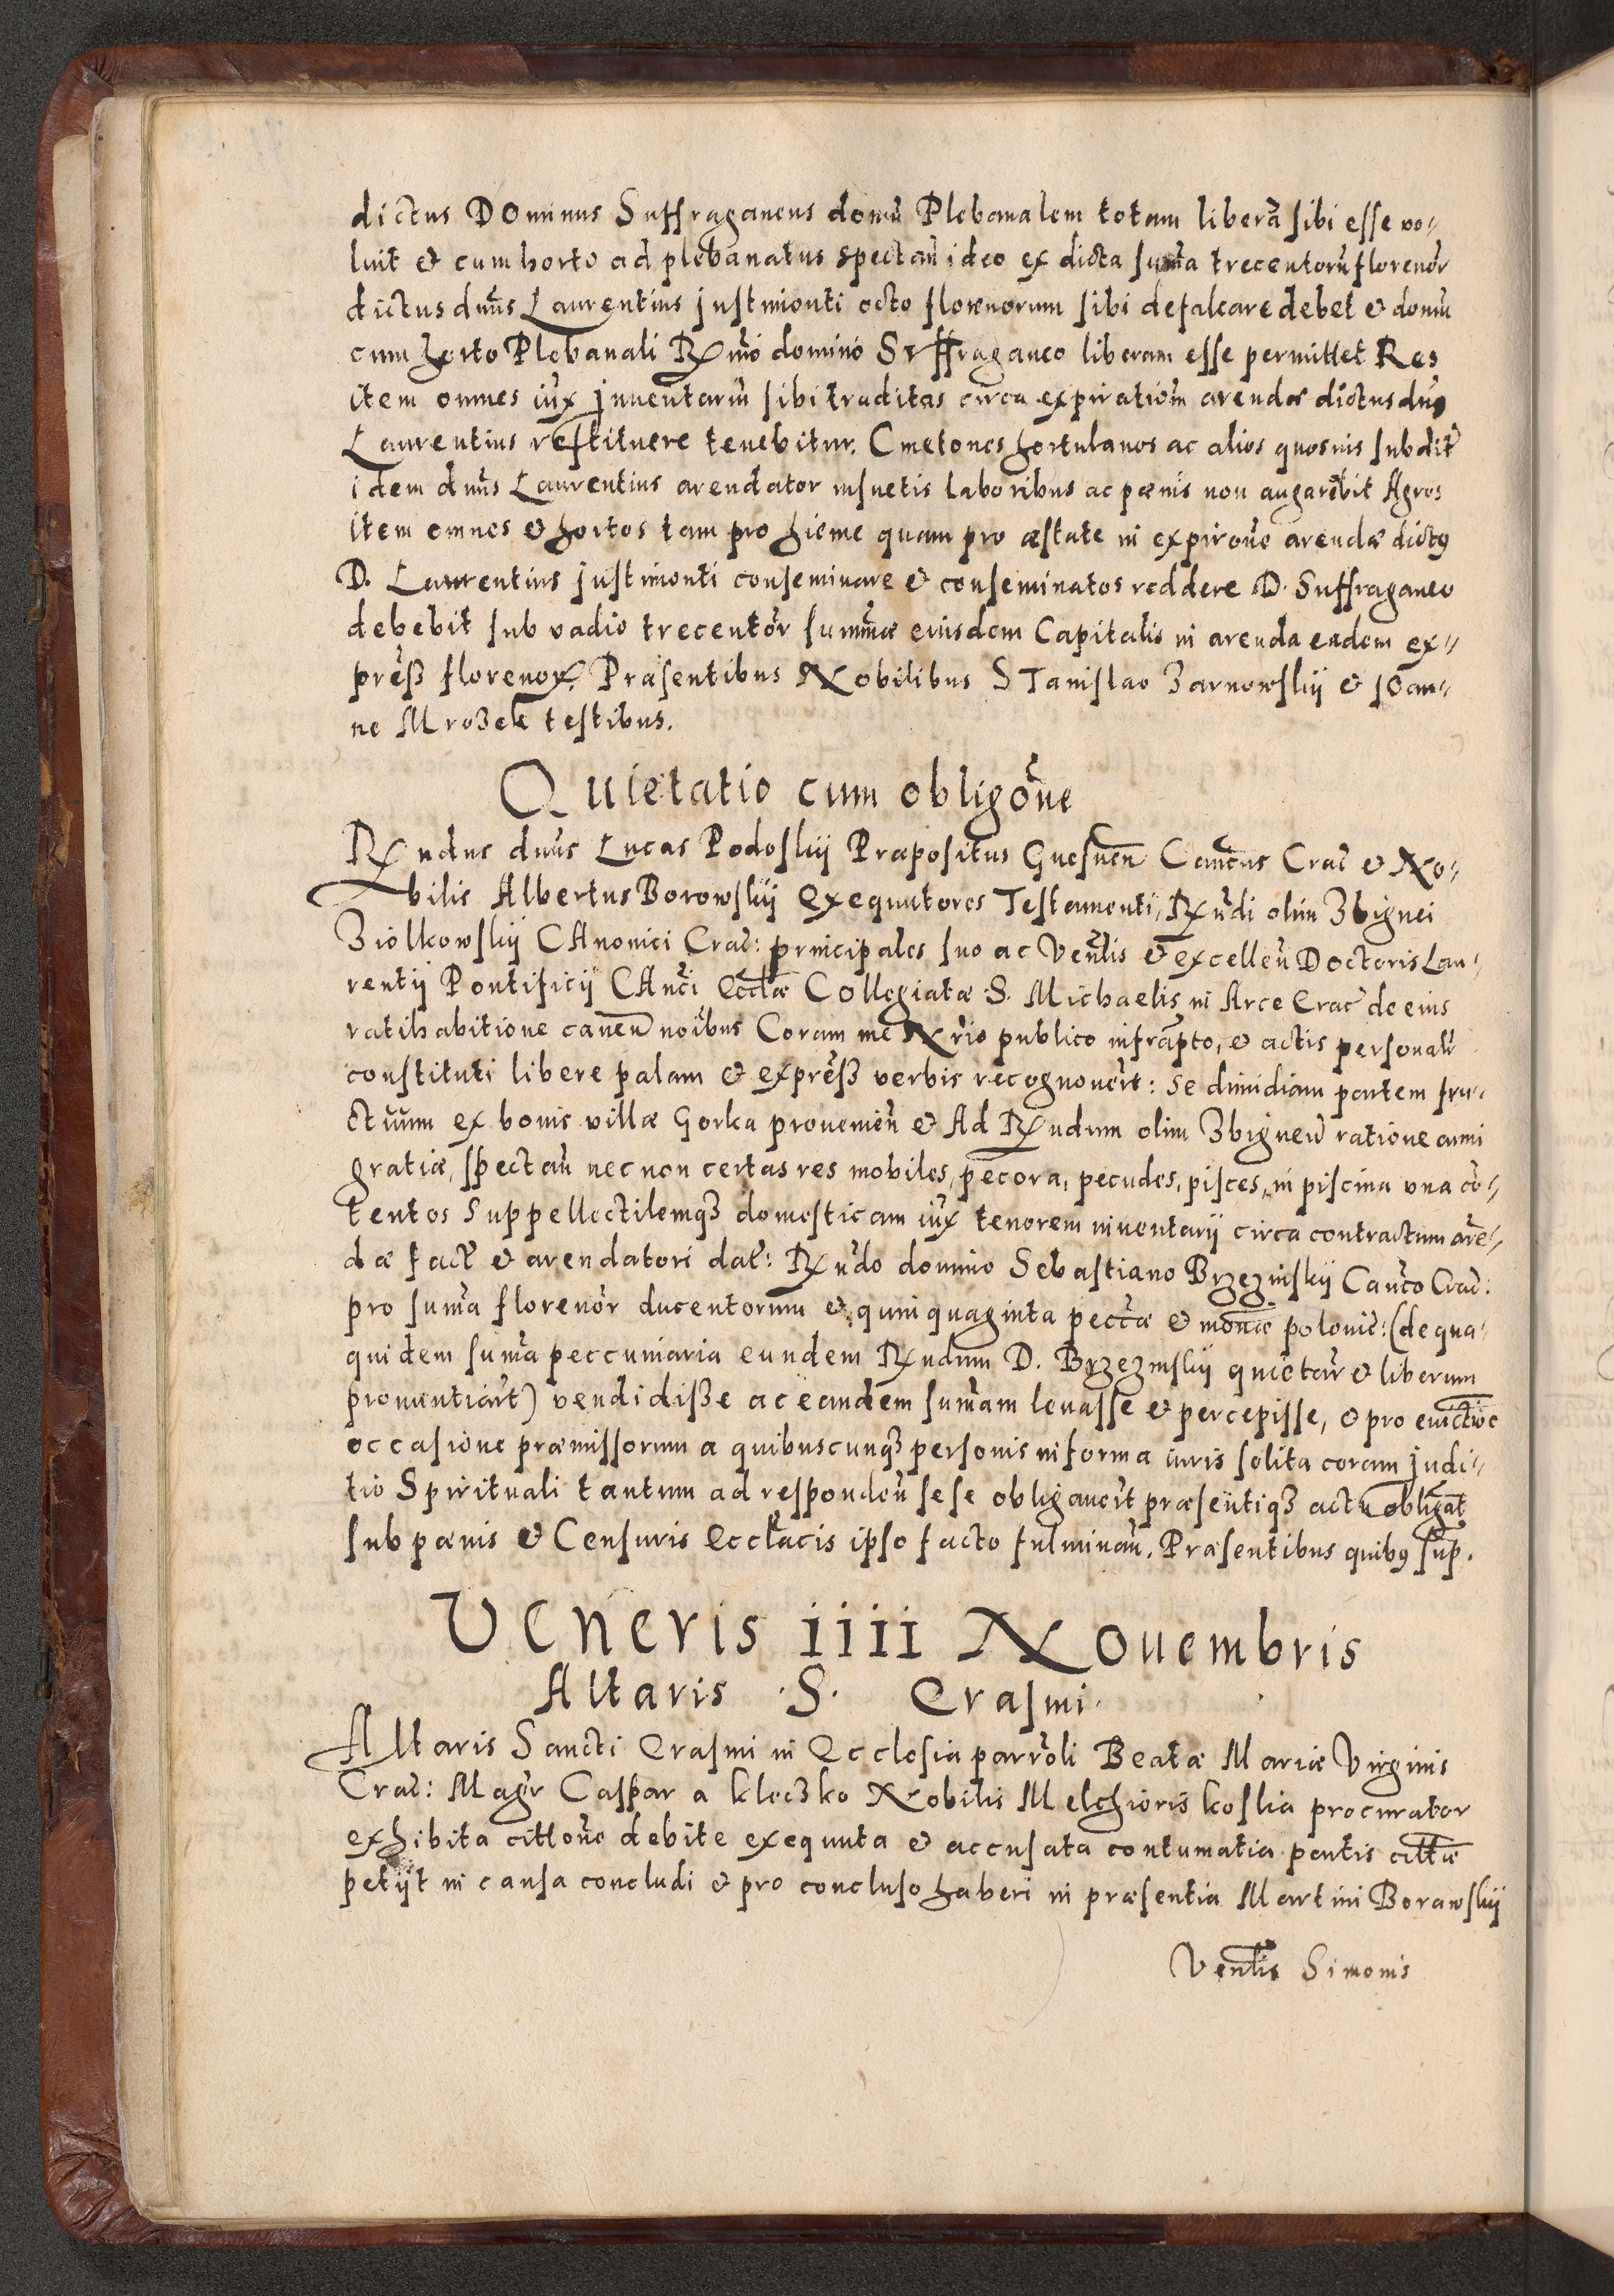 dictus Dominus Suffraganeus domū Plebanalem totam liberā sibi esse vo-
luit & cum horto ad plebanatus spectan̄ ideo ex dicta sum̄a trecentorū florenor̄
dictus dn̄us Laurentius Justimonti octo florenorum sibi defalcare debet & domū
cum horto Plebanali Rx̄mo domino Suffraganeo liberam esse permittet Res
item omnes iux Inuentariū sibi traditas circa expirationē arendæ dictus dn̄s
Laurentius restituere tenebitur. Cmetones hortulanos ac alios quosuis subdit̄
idem dn̄us Laurentius arendator insuetis laboribus ac pænis non angarebit Agros
item omnes & hortos tam pro hieme quam pro æstate in expirōne arendæ dictus
D. Laurentius Justimonti conseminare & conseminatos reddere D. Suffraganeo
debebit sub vadio trecentor̄ sum̄mæ eiusdem Capitalis in arenda eadem ex-
preſß florenor̄. Præsentibus Nobilibus STanislao Zarnowskij & JOan-
ne Mrozek testibus.
Quietatio cum obligōne
Rx̄ndus dn̄us Lucas Podoskij Præpositus Gnesnen̄ Canc̄us Crac̄ & No-
bilis Albertus Borowskij Exequutores Testamenti, Rn̄di olim Zbignei
Ziolkowskij CAnonici Crac̄: principales suo ac Ven̄lis & excellen̄ Doctoris Lau-
rentij Pontificij CAnc̄i Eccl̄æ Collegiatæ S. Michaelis in Arce Crac̄ de eius
ratihabitione cauen̄ no͞ibus Coram me Nr̄io publico infrāpto, & actis personalr̄
constituti libere palam & expreſß verbis recognouer̄t: se dimidiam partem fru-
ctuum ex bonis villæ Gorka prouenien̄ & Ad Rx̄ndum olim Zbigneū ratione anni
gratiæ, spectan̄ nec non certas res mobiles, pecora, pecudes, pisces, in piscina vna cō-
tentos Suppellectilemqȝ domesticam iux tenorem inuentarij circa contractum arē-
dæ fact̄ & arendatori dat̄: Rx̄ndo domino Sebastiano Brzezinskij Canc̄o Crac̄:
pro sum̄a florenor̄ ducentorum & quinquaginta pecc̄æ & mon̄æ polonic̄: (de qua-
quidem sum̄a peccuniaria eundem Rx̄ndum D. Brzezinskij quietar̄t & liberum
pronuntiar̄t) vendidiſße ac eandem sum̄am leuasse & percepisse, & pro euictiōe
occasione præmissorum a quibuscunqȝ personis in forma iuris solita coram judi-
tio Spirituali tantum ad responden̄ sese obligauer̄t præsentiqȝ actu obligāt
sub pænis & Censuris Eccl̄acis ipso facto fulminan̄. Præsentibus quibus sup̄.
Veneris iiii Nouembris
Altaris S. Erasmi.
Altaris Sancti Erasmi in Ecclesia parr̄oli Beatæ Mariæ Virginis
Crac̄: Magr̄ Caspar a kleczko Nobilis Melchioris koslia procurator
exhibita citt̄one debite exequuta & accusata contumatia partis citt̄æ
petijt in causa concludi & pro concluso haberi in præsentia Martini Borawskij
Ven̄lis Simonis